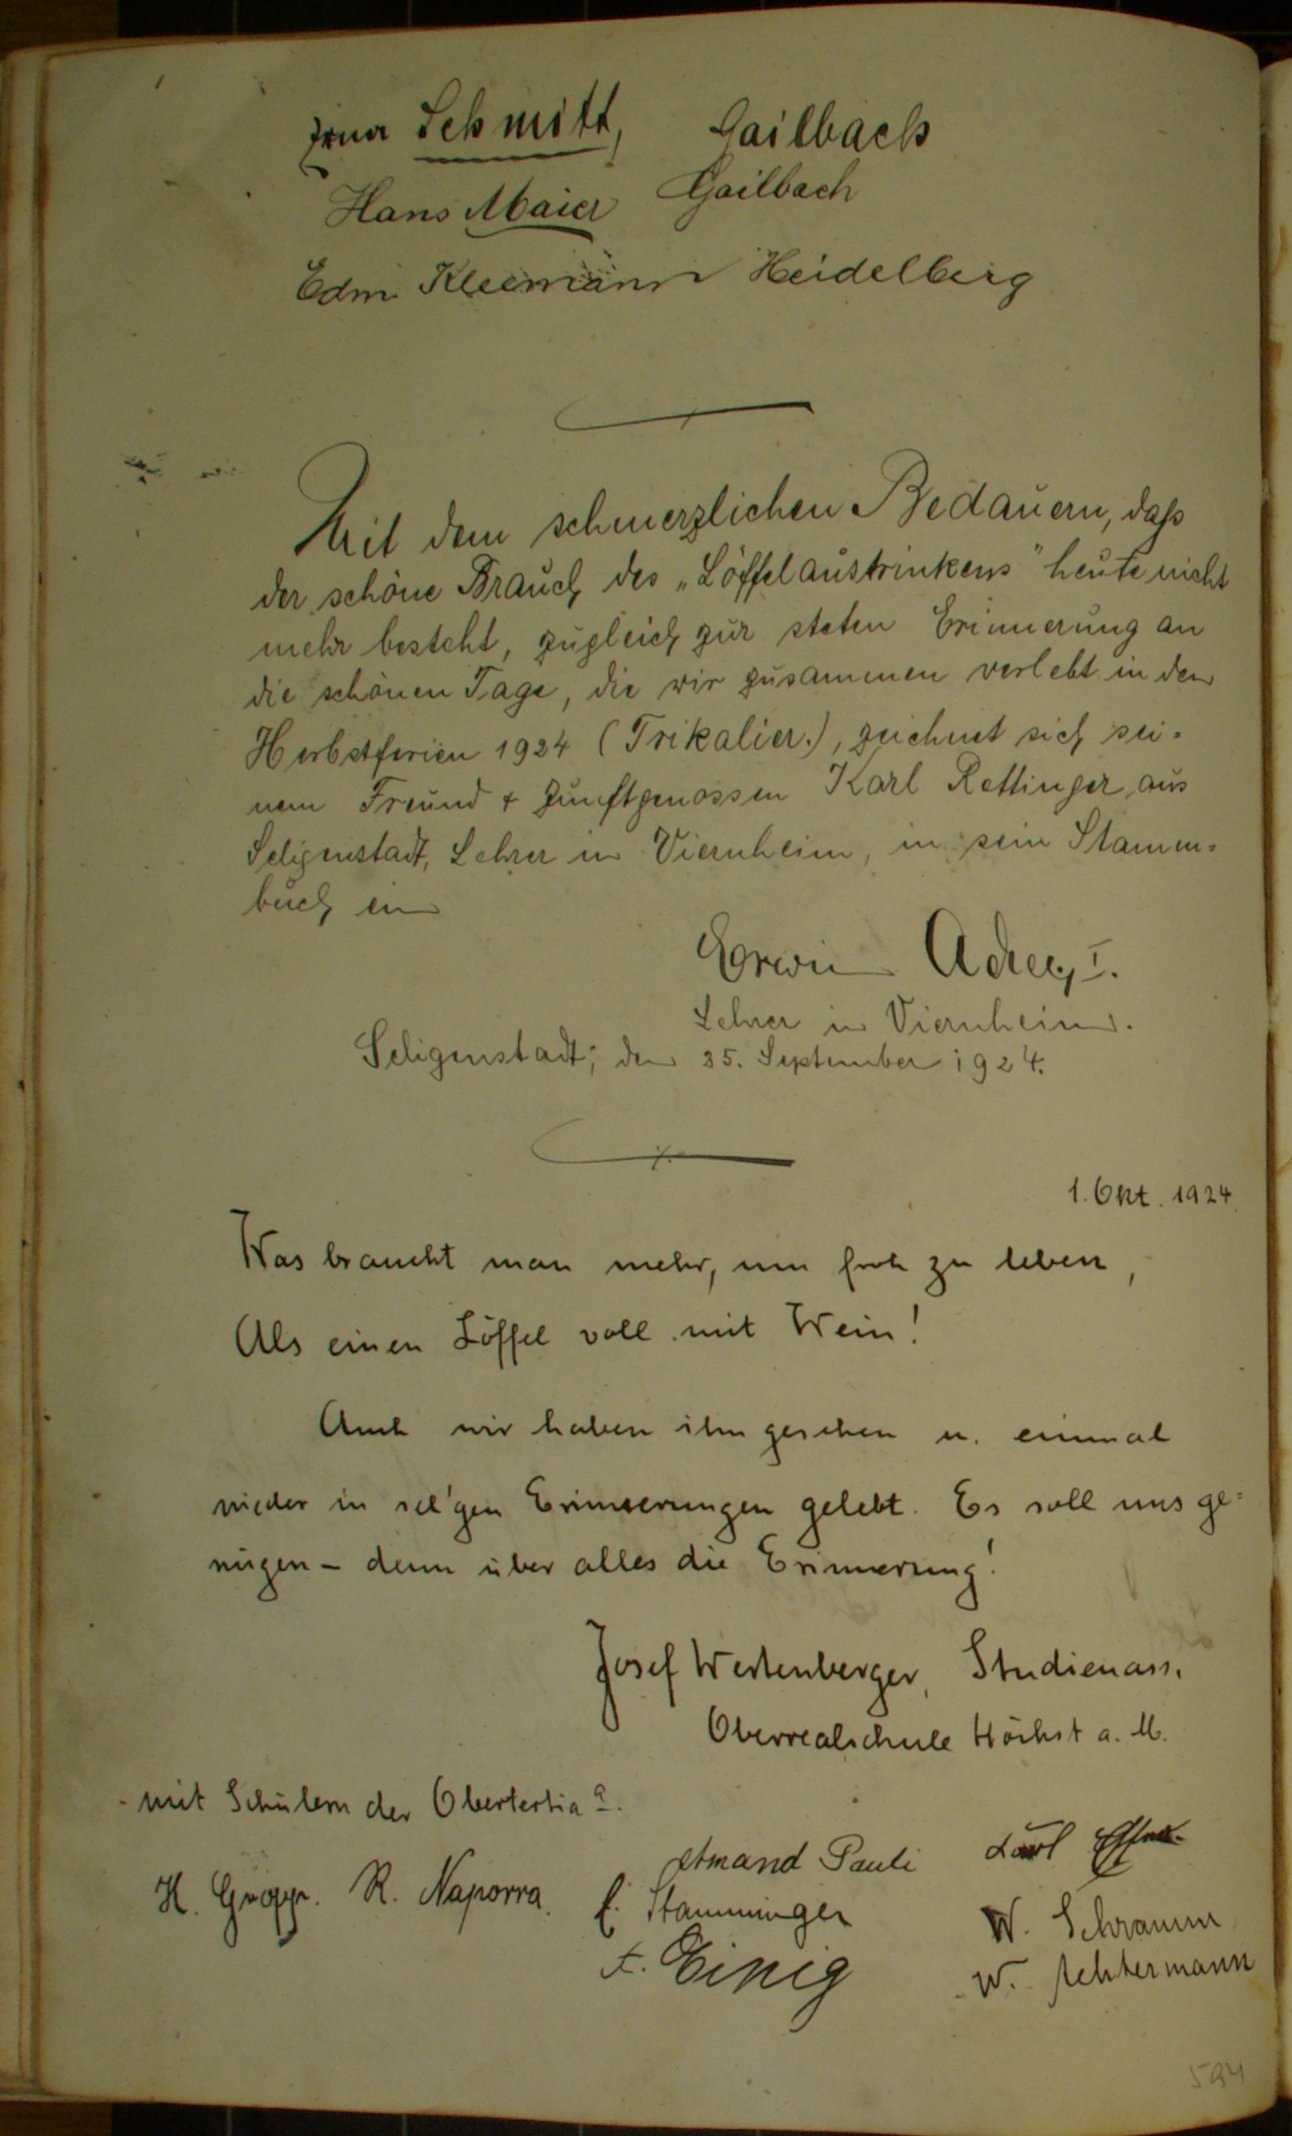 Schmitt, Gailbach
Hans Maier Gailbach
Edm. Kleemann Heidelberg
Mit dem schmerzlichen Bedauern, daß
der schöne Brauch des „Löffelaustrinkens" heute nicht
mehr besteht, zugleich zur steten Erinnerung an
die schönen Tage, die wir zusammen verlebt in den
Herbstferien 1924 (Trikalier.), zeichnet sich sei-
nem Freund + Zunftgenossen Karl Rettinger aus
Seligenstadt, Lehrer in Viernheim, in sein Stamm-
buch ein
Erwin I.
Lehrer in Viernheim.
Seligenstadt, den 25. September 1924.
1. Okt. 1924.
Was braucht man mehr, um froh zu leben,
Als einen Löffel voll mit Wein!
Auch wir haben ihn gesehen u. einmal
wieder in sel'gen Erinnerungen gelebt. Es soll uns ge=
nügen – denn über alles die Erinnerung!
Josef Westenberger, Studienass.
Oberrealschule Höchst a. M.
- mit Schülern der Obertertia a.
Amand Pauli Karl
H. R. Naporra. Stamminger W. Schramm
Einig W. Achtermann
594